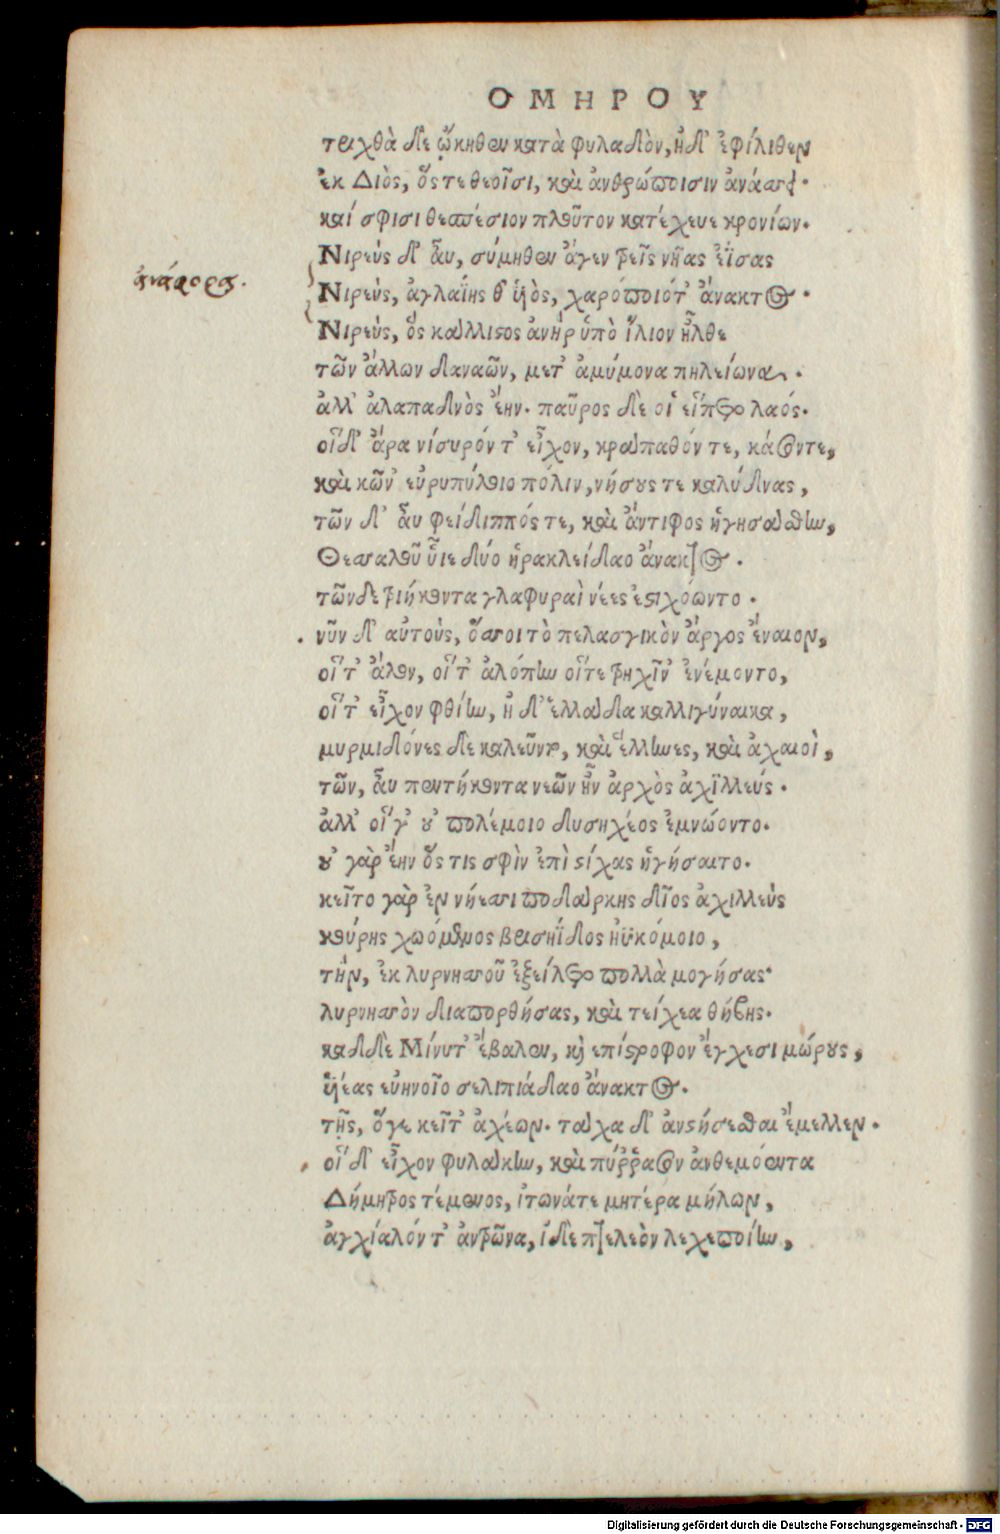 ΟΜΗΡΟΥ
τριχθὰ δὲ ᾤκηθεν κατὰ φυλαδὸν, ἠδ' ἐφίληθεν
ἐκ Διὸς, ὅς τε θεοῖσι, καὶ ἀνθρώποισιν ἀνάσσει.
καί σφισι θεσπέσιον πλοῦτον κατέχευε κρονίων.
Νιρεὺς δ' αὖ, σύμηθεν ἄγεν τρεῖς νῆας ἐΐσας
ἀναφορα.
Νιρεὺς, ἀγλαΐης θ' ὑὸς, χαρόποιό τ' ἄνακτος.
Νιρεὺς, ὃς κάλλιστος ἀνὴρ ὑπὸ ἴλιον ἦλθε
τῶν ἄλλων δαναῶν, μετ' ἀμύμονα πηλείωνα.
ἀλλ' ἀλαπαδνὸς ἔην. παῦρος δὲ οἱ εἵπετο λαός.
οἳ δ' ἄρα νίσυρόν τ' εἶχον, κράπαθόν τε, κάσον τε,
καὶ κῶν' εὐρυπύλοιο πόλιν, νήσους τε καλύδνας,
τῶν δ' αὖ φείδιππός τε, καὶ ἄντιφος ἡγησάσθην,
Θεσσαλοῦ υἷε δύο ἡρακλείδαο ἄνακτος.
τῶν δὲ τριήκοντα γλαφυραὶ νέες ἐστιχόωντο.
νῦν δ' αὐτοὺς, ὅσσοι τὸ πελασγικὸν ἄργος ἔναιον,
οἵ τ' ἄλον, οἵ τ' ἀλόπην οἵ τε τρηχῖν' ἐνέμοντο,
οἵ τ' εἶχον φθίην, ἠ δ' ἑλλάδα καλλιγύναικα,
μυρμιδόνες δὲ καλεῦντο, καὶ ἕλληνες, καὶ ἀχαιοὶ,
τῶν, αὖ πεντήκοντα νεῶν ἦν ἀρχὸς ἀχϊλλεύς.
ἀλλ' οἵ γ' οὐ πολέμοιο δυσηχέος ἐμνώοντο.
οὐ γὰρ ἔην ὅς τις σφὶν ἐπὶ στίχας ἡγήσαιτο.
κεῖτο γὰρ ἐν νήεσσι ποδάρκης δῖος ἀχιλλεὺς
κούρης χωόμενος βρισηΐδος ἠϋκόμοιο,
τὴν, ἐκ λυρνησσοῦ ἐξείλετο πολλὰ μογήσας·
λυρνησσὸν διαπορθήσας, καὶ τείχεα θήβης.
καδδὲ Μίνυτ' ἔβαλεν, καὶ ἐπίστροφον ἔγχεσι μώρους,
ὑέας εὐηνοῖο σεληπιάδαο ἄνακτος.
τῆς, ὅγε κεῖτ' ἀχέων. τάχα δ' ἀνστήσεσθαι ἔμελλεν.
οἳ δ' εἶχον φυλάκην, καὶ πύῤῥασον ἀνθεμόεντα
Δήμητρος τέμενος, ἰτωνά τε μητέρα μήλων,
ἀγχίαλόν τ' ἀντρῶνα, ἰδὲ πτελεὸν λεχεποίην,
Digitalisierung gefördert durch die Deutsche Forschungsgemeinschaft - DFG